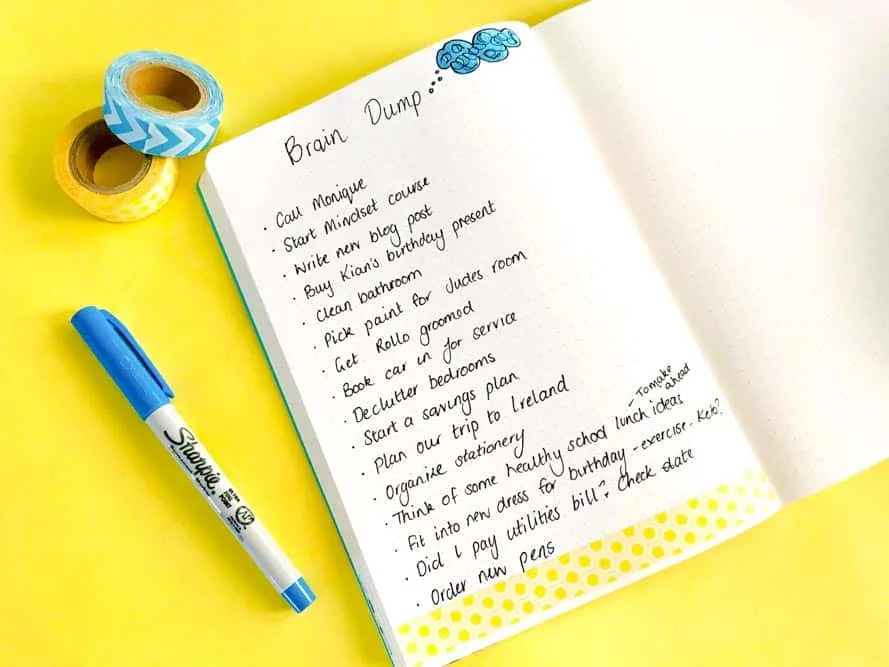 Brain Dump
• Call Monique
• Start Mindset course
• Write new blog post
• Buy Kian's birthday present
• Clean bathroom
• Pick paint for Judes room
• Get Rollo groomed
• Book car in for service
• Declutter bedrooms
• Start a savings plan
• Plan our trip to Ireland
• Organise stationery
• Think of some healthy school lunch ideas - To make ahead
• Fit into new dress for birthday - exercise - Keto?
• Did I pay utilities bill? Check date
• Order new pens
Sharpie